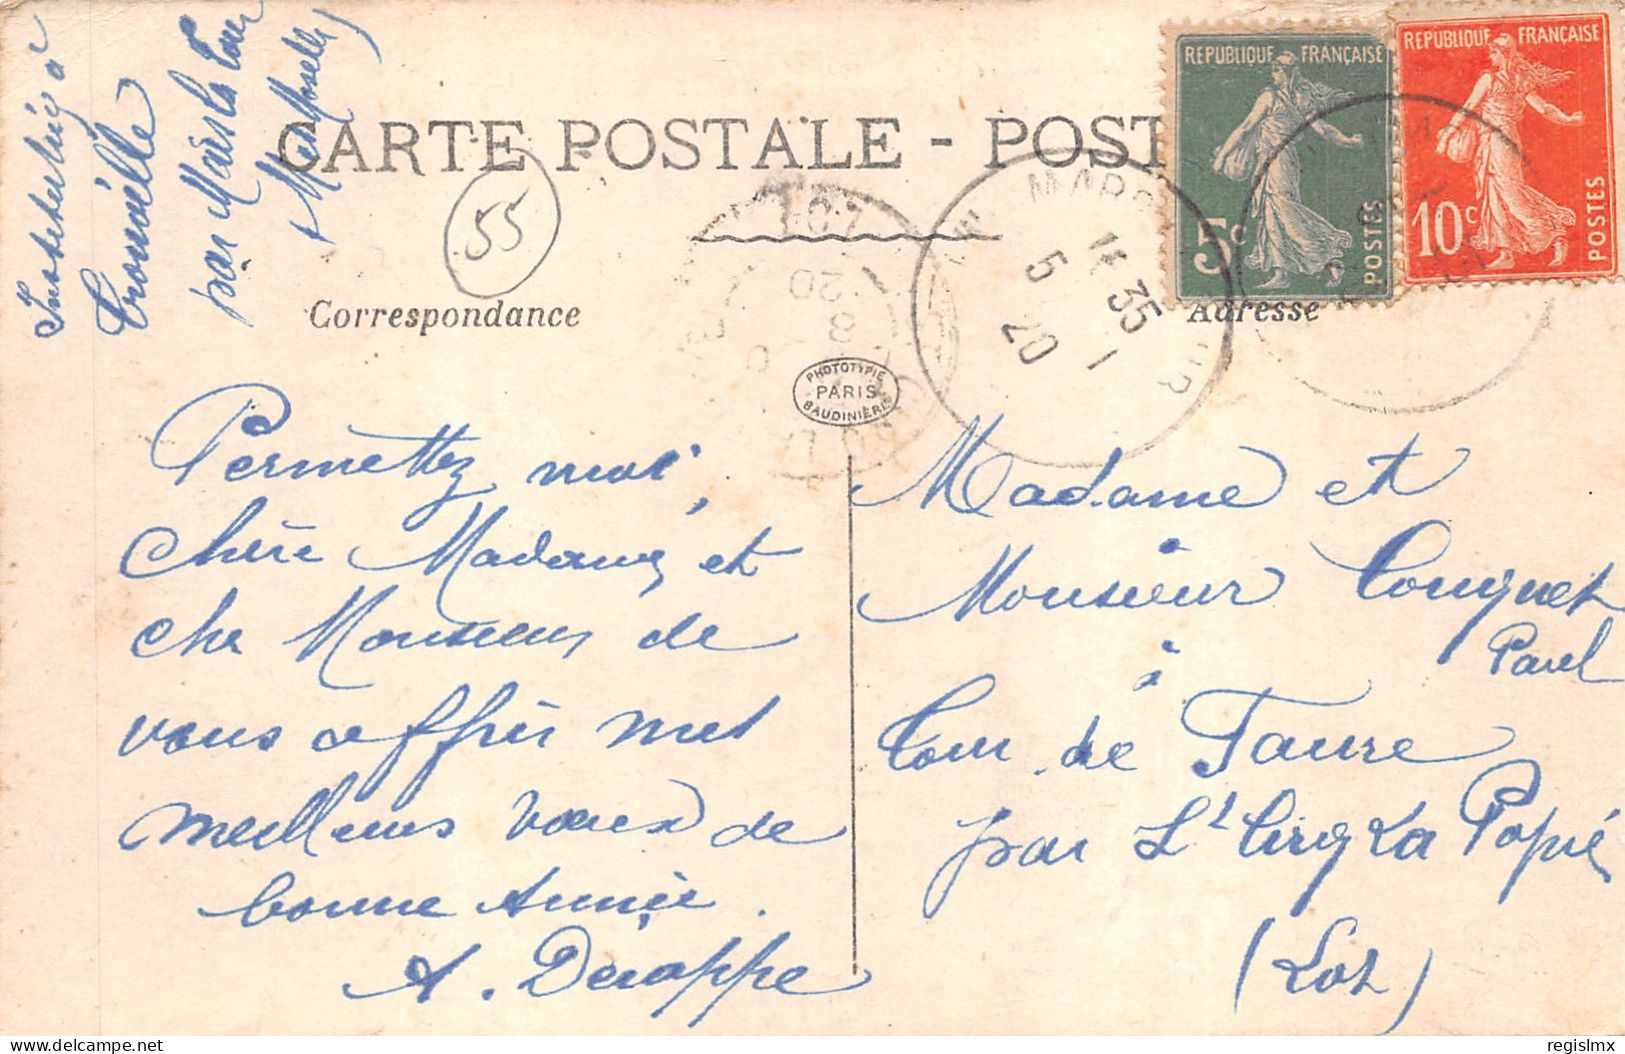 Instituteur à
Tronville
par Mars la Tour
(Mthe Moselle)
CARTE POSTALE - POST
55
Correspondance
Adresse
REPUBLIQUE FRANÇAISE
5c
POSTES
REPUBLIQUE FRANÇAISE
10c
POSTES
MARS
1* 35
5 - 1
20
LOT
20
8
PHOTOTYPIE
PARIS
BAUDINIÈRE
Permettez moi,
chère Madame, et
cher Monsieur de
vous offrir mes
meilleurs vœux de
bonne Année.
A. Derappe
Madame et
Monsieur Couquet
Paul
à
Tour de Faure
par St Cirq La Popie
(Lot)
delcampe.net
regislmx